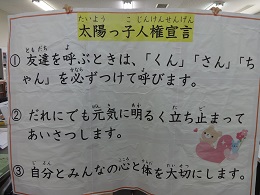 太陽っ子人権宣言
① 友達を呼ぶときは、「くん」「さん」「ち
ゃん」を必ずつけて呼びます。
② だれにでも元気に明るく立ち止まって
あいさつします。
③ 自分とみんなの心と体を大切にします。